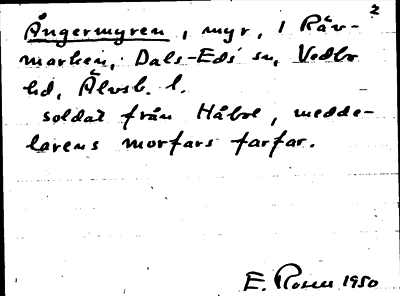 2
Ångermyren, myr, i Räv-
marken, Dals-Eds sn, Vedbo
hd, Älvsb. l.
soldat från Håbol, medde-
larens morfars farfar.
E. Rosen 1950